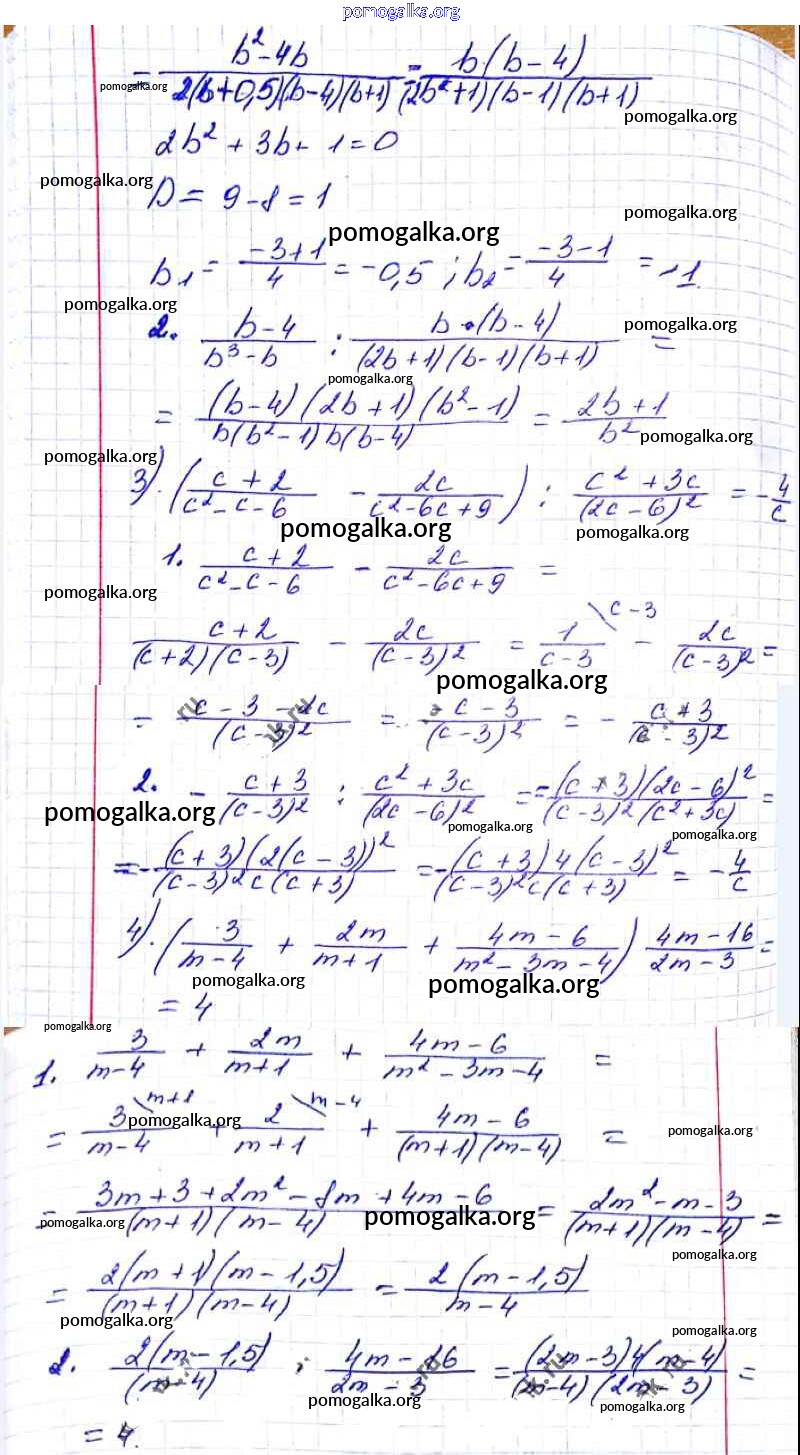 pomogalka.org
= (b² - 4b)/(2(b+0,5)(b-4)(b+1)) = (b·(b-4))/((2b²+1)(b-1)(b+1))
pomogalka.org
pomogalka.org
2b² + 3b + 1 = 0
pomogalka.org
D = 9 - 8 = 1
pomogalka.org
pomogalka.org
b₁ = (-3+1)/4 = -0,5 ; b₂ = (-3-1)/4 = -1
pomogalka.org
pomogalka.org
2. (b-4)/(b³-b) : (b·(b-4))/((2b+1)(b-1)(b+1)) =
pomogalka.org
= ((b-4)(2b+1)(b²-1))/(b(b²-1)b(b-4)) = (2b+1)/b²
pomogalka.org
pomogalka.org
3). ((c+2)/(c²-c-6) - 2c/(c²-6c+9)) : (c²+3c)/(2c-6)² = -4/c
pomogalka.org
pomogalka.org
1. (c+2)/(c²-c-6) - 2c/(c²-6c+9) =
pomogalka.org
(c+2)/((c+2)(c-3)) - 2c/(c-3)² = 1/(c-3) \c-3 - 2c/(c-3)² =
pomogalka.org
= (c-3-2c)/(c-3)² = (-c-3)/(c-3)² = - (c+3)/(c-3)²
2. - (c+3)/(c-3)² : (c²+3c)/(2c-6)² = -((c+3)(2c-6)²)/((c-3)²(c²+3c)) =
pomogalka.org
pomogalka.org
pomogalka.org
= -((c+3)(2(c-3))²)/((c-3)²c(c+3)) = -((c+3)4(c-3)²)/((c-3)²c(c+3)) = -4/c
4). (3/(m-4) + 2m/(m+1) + (4m-6)/(m²-3m-4)) (4m-16)/(2m-3) =
pomogalka.org
pomogalka.org
= 4
pomogalka.org
1. 3/(m-4) + 2m/(m+1) + (4m-6)/(m²-3m-4) =
= 3/(m-4) \m+1 + 2/(m+1) \m-4 + (4m-6)/((m+1)(m-4)) =
pomogalka.org
pomogalka.org
= (3m+3+2m²-8m+4m-6)/((m+1)(m-4)) = (2m²-m-3)/((m+1)(m-4)) =
pomogalka.org
pomogalka.org
pomogalka.org
= (2(m+1)(m-1,5))/((m+1)(m-4)) = (2(m-1,5))/(m-4)
pomogalka.org
pomogalka.org
2. (2(m-1,5))/(m-4) : (4m-16)/(2m-3) = ((2m-3)4(m-4))/((m-4)(2m-3)) =
pomogalka.org
pomogalka.org
= 4.